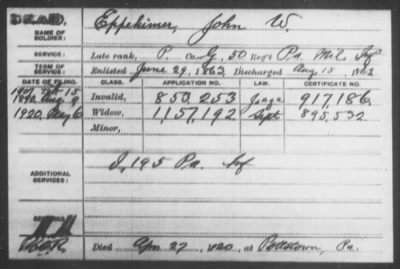 DEAD.
NAME OF SOLDIER: Eppehimer, John W.
SERVICE: Late rank, P. Co. G, 50 Reg't Pa. Mil. Inf
TERM OF SERVICE: Enlisted June 29, 1863, Discharged Aug. 15, 1863
DATE OF FILING. CLASS. APPLICATION NO. LAW. CERTIFICATE NO.
1892 Aug 9 Invalid, 850,253 917,186
1920, May 6 Widow, 1157,192 Sept 895,532
Minor,
ADDITIONAL SERVICES: I, 195 Pa. Inf
REMARKS:
Died Apr. 27, 1920, at Pottstown, Pa.